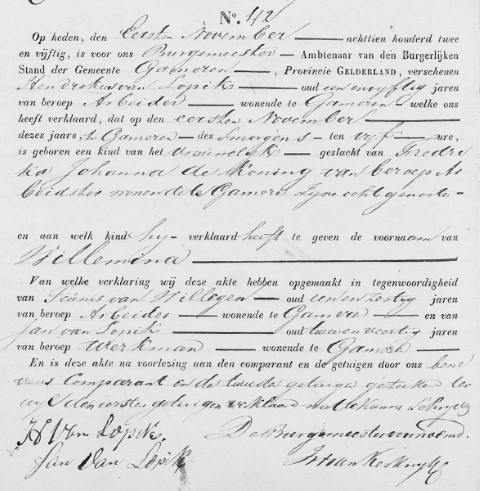 N.º 42
Op heden, den Eersten November achttien honderd twee
en vijftig, is voor ons Burgemeester Ambtenaar van den Burgerlijken
Stand der Gemeente Gameren, Provincie GELDERLAND, verschenen
Hendrikus van Lopik oud een en vyftig jaren
van beroep Arbeider wonende te Gameren welke ons
heeft verklaard, dat op den eersten November
dezes jaars, te Gameren des smorgens ten vyf ure,
is geboren een kind van het vrouwelyk geslacht van Fredri
ka Johanna de Koning van beroep Ar
beidster wonende te Gameren zyne echtgenoote
en aan welk kind hy verklaard heeft te geven de voornaam van
Willemina
Van welke verklaring wij deze akte hebben opgemaakt in tegenwoordigheid
van van Willegen oud een en zestig jaren
van beroep Arbeider wonende te Gameren en van
Jan van Lopik oud twee en veertig jaren
van beroep Werkman wonende te Gameren
En is deze akte na voorlezing aan den comparant en de getuigen door ons bene
vens Comparant en de tweede getuige geteekend ter
wyl den eersten getuigen verklaard niet te kunnen
H V Lopik De Burgemeester voornoemd.
Jan Van Lopik